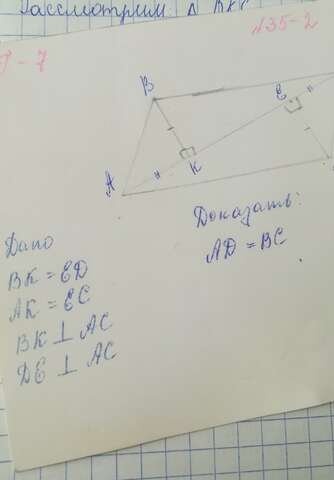 Рассмотрим Δ ВКС
135-2
Г-7
В
Е
К
А
Доказать:
AD = BC
Дано
BK = ED
AK = EC
BK ⊥ AC
DE ⊥ AC